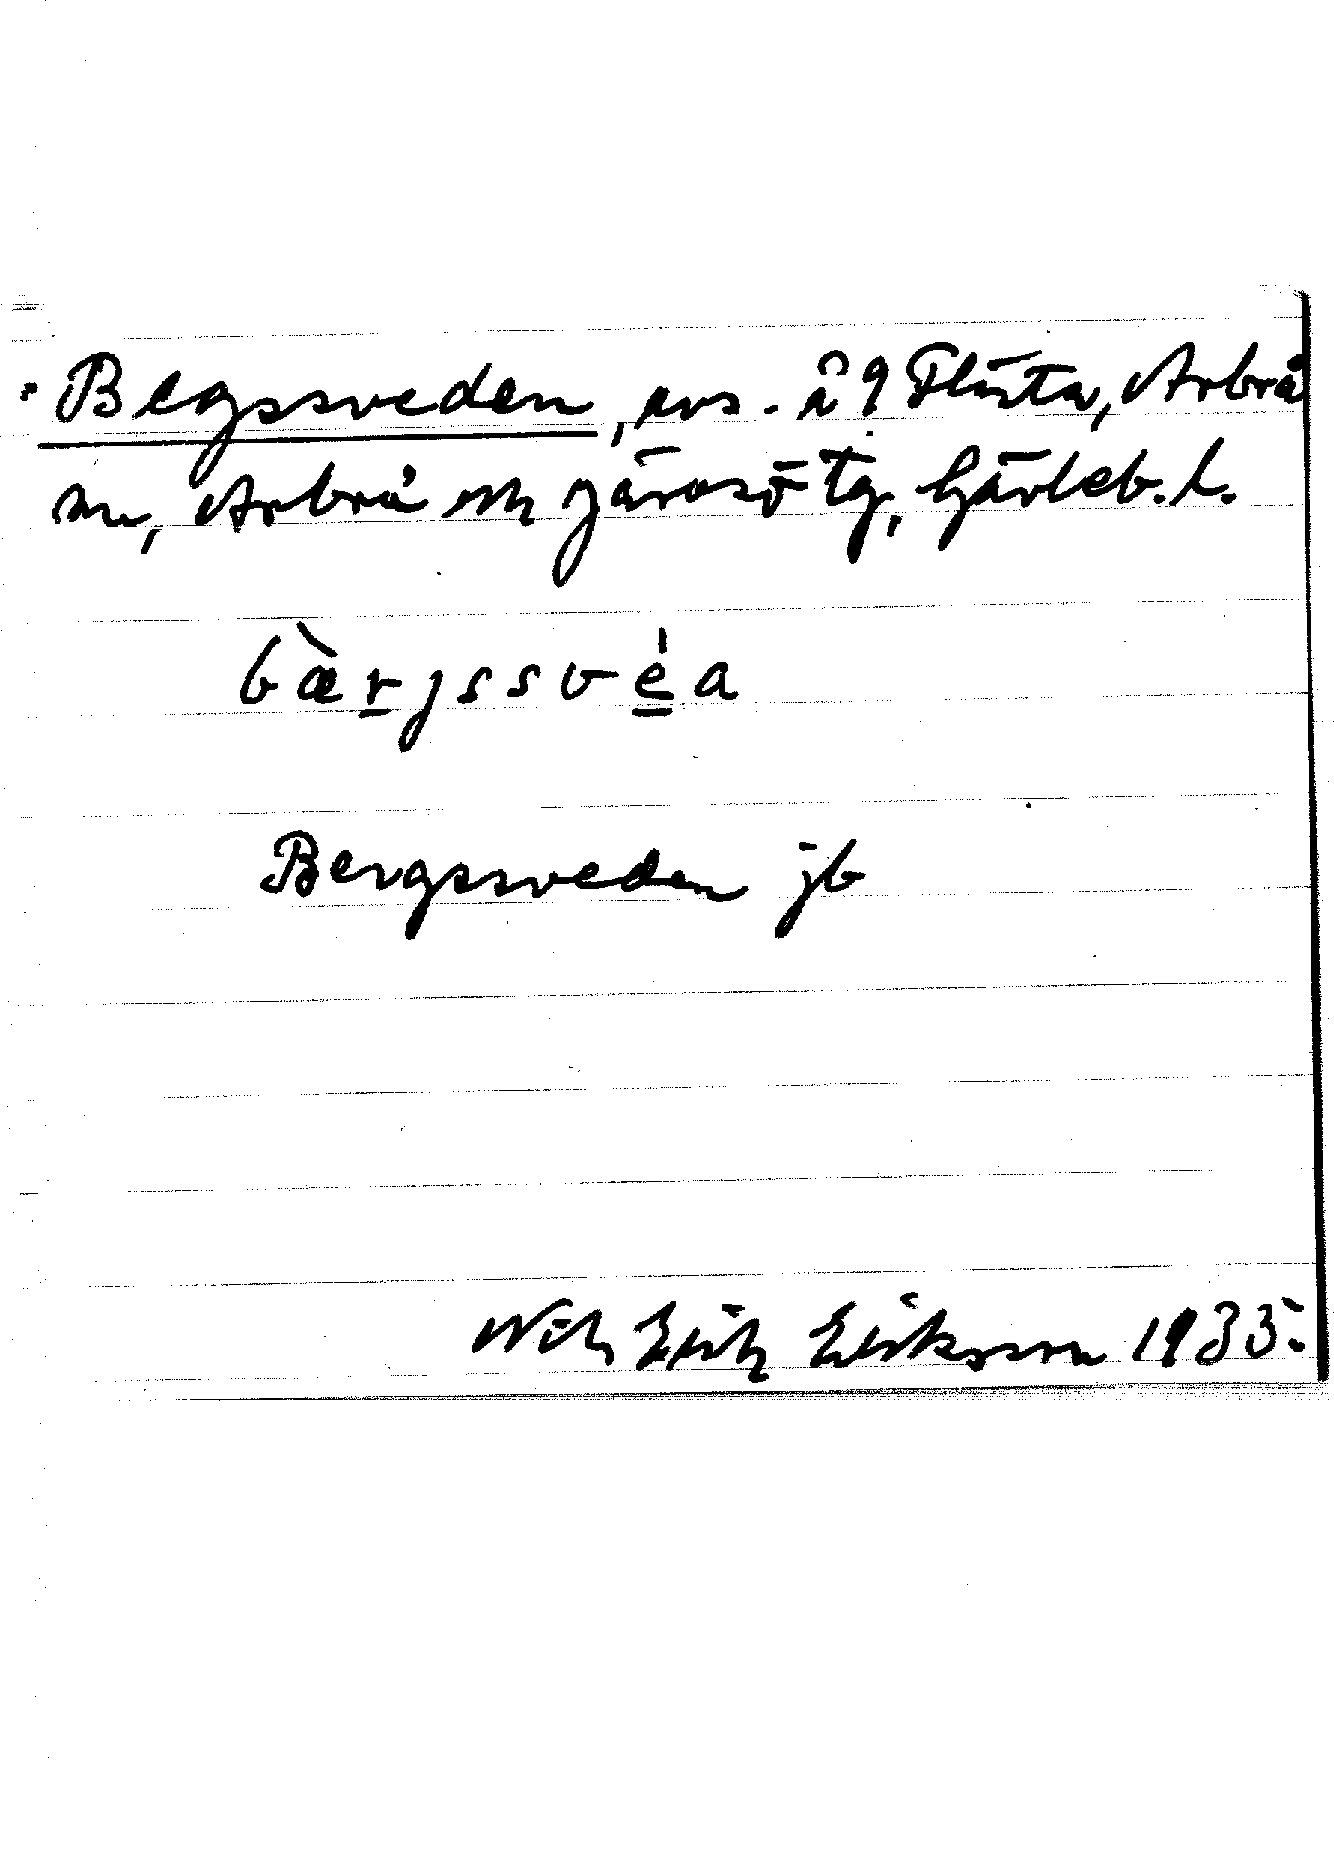 Begssveden, avs. å 9 Flästa, Arbrå
sn, Arbrå och Järvsö tg, Gävleb. l.
bæ̀r̲jssvé̲a
Bergssveden jb
Nils Erik Eriksson 1935.